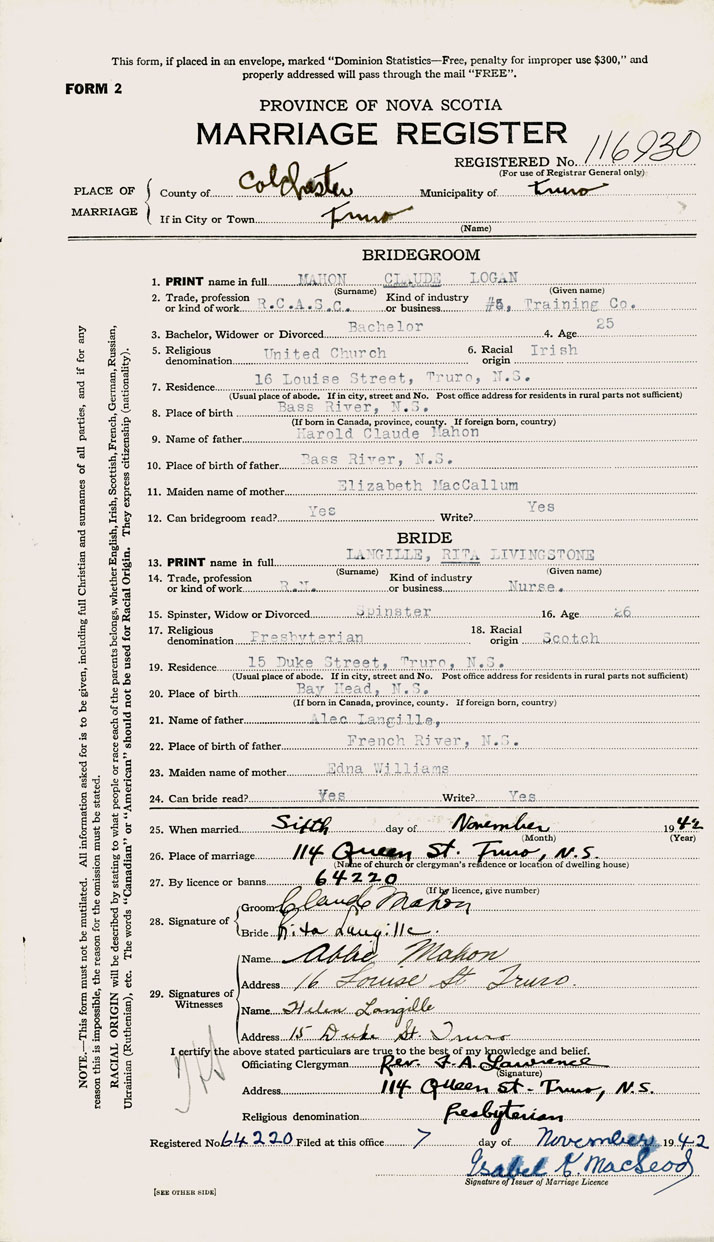 This form, if placed in an envelope, marked "Dominion Statistics—Free, penalty for improper use $300," and
properly addressed will pass through the mail "FREE".
FORM 2
PROVINCE OF NOVA SCOTIA
MARRIAGE REGISTER
REGISTERED No. 116930
(For use of Registrar General only)
PLACE OF MARRIAGE
County of Colchester Municipality of Truro
If in City or Town Truro
(Name)
BRIDEGROOM
1. PRINT name in full MAHON CLAUDE LOGAN
(Surname) (Given name)
2. Trade, profession or kind of work R.C.A.S.C. Kind of industry or business #5, Training Co.
3. Bachelor, Widower or Divorced Bachelor 4. Age 25
5. Religious denomination United Church 6. Racial origin Irish
7. Residence 16 Louise Street, Truro, N.S.
(Usual place of abode. If in city, street and No. Post office address for residents in rural parts not sufficient)
8. Place of birth Bass River, N.S.
(If born in Canada, province, county. If foreign born, country)
9. Name of father Harold Claude Mahon
10. Place of birth of father Bass River, N.S.
11. Maiden name of mother Elizabeth MacCallum
12. Can bridegroom read? Yes Write? Yes
BRIDE
13. PRINT name in full LANGILLE, RITA LIVINGSTONE
(Surname) (Given name)
14. Trade, profession or kind of work R.N. Kind of industry or business Nurse.
15. Spinster, Widow or Divorced Spinster 16. Age 26
17. Religious denomination Presbyterian 18. Racial origin Scotch
19. Residence 15 Duke Street, Truro, N.S.
(Usual place of abode. If in city, street and No. Post office address for residents in rural parts not sufficient)
20. Place of birth Bay Head, N.S.
(If born in Canada, province, county. If foreign born, country)
21. Name of father Alec Langille,
22. Place of birth of father French River, N.S.
23. Maiden name of mother Edna Williams
24. Can bride read? Yes Write? Yes
25. When married Sifth day of November 1942
(Month) (Year)
26. Place of marriage 114 Queen St. Truro, N.S.
(Name of church or clergyman's residence or location of dwelling house)
27. By licence or banns 64220
(If by licence, give number)
28. Signature of
Groom Claude Mahon
Bride Rita Langille.
29. Signatures of Witnesses
Name Abbie Mahon
Address 16 Louise St Truro.
Name Helen Langille
Address 15 Duke St. Truro
I certify the above stated particulars are true to the best of my knowledge and belief.
Officiating Clergyman Rev. F. A. Lawrence
(Signature)
Address 114 Queen St - Truro, N.S.
Religious denomination Presbyterian
Registered No. 64220 Filed at this office 7 day of November 1942
Isabel K. MacLeod
Signature of Issuer of Marriage Licence
[SEE OTHER SIDE]
NOTE.—This form must not be mutilated. All information asked for is to be given, including full Christian and surnames of all parties, and if for any
reason this is impossible, the reason for the omission must be stated.
RACIAL ORIGIN will be described by stating to what people or race each of the parents belongs, whether English, Irish, Scottish, French, German, Russian,
Ukrainian (Ruthenian), etc. The words "Canadian" or "American" should not be used for Racial Origin. They express citizenship (nationality).